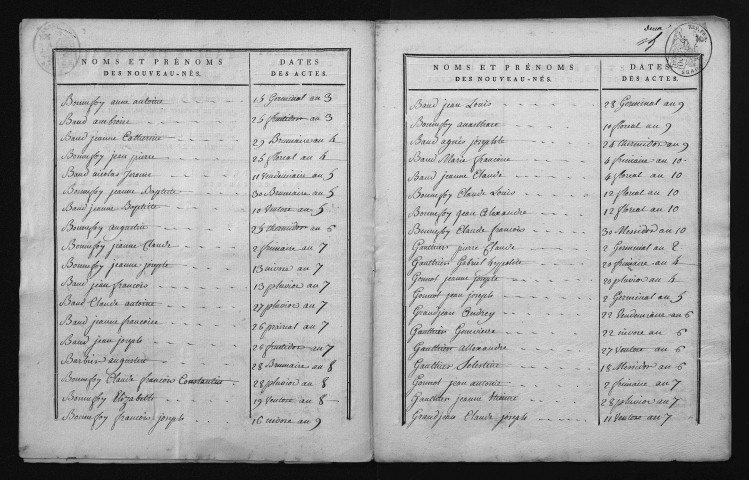 NOMS ET PRÉNOMS DES NOUVEAU-NÉS.
DATES DES ACTES.
Bonnefoy anne antoine 15 Germinal an 3
Baud ambroise 25 fructidor an 3
Baud jeanne Catherine 29 Brumaire an 4
Bonnefoy jean pierre 25 floreal an 4
Baud nicolas Jerome 11 Vendemiaire an 5
Bonnefoy jeanne Baptiste 30 Brumaire an 5
Baud jeanne Baptiste 10 Ventose an 5
Bonnefoy augustin 25 thermidor an 6
Bonnefoy jeanne Claude 2 frimaire an 7
Bonnefoy jeanne josephe 13 nivose an 7
Baud jean francois 13 pluviose an 7
Baud Claude antoine 27 pluviose an 7
Baud jeanne francoise 26 prairial an 7
Baud jean joseph 26 fructidor an 7
Barbier augustin 28 Brumaire an 8
Bonnefoy Claude francois Constantin 28 pluviose an 8
Bonnefoy Elizabeth 19 ventose an 8
Bonnefoy francois joseph 16 nivose an 9
deux
NOMS ET PRÉNOMS DES NOUVEAU-NÉS.
DATES DES ACTES.
Baud jean Louis 28 Germinal an 9
Bonnefoy 10 floreal an 9
Baud agnès josephte 24 thermidor an 9
Baud Marie francoise 4 frimaire an 10
Baud jeanne Claude 4 floreal an 10
Bonnefoy Claude Louis 12 floreal an 10
Bonnefoy jean Alexandre 12 floreal an 10
Bonnefoy Claude francois 30 Messidor an 10
Gauthier pierre Claude 2 Germinal an 2
Gauthier Gabriel hypolite 20 frimaire an 4
Gonnot jeanne josephe 20 pluviose an 4
Gonnot jean joseph 2 Germinal an 5
Grandjean Andrey 22 Vendemiaire an 6
Gauthier Genevieve 22 nivose an 6
Gauthier allexandre 27 Ventose an 6
Gauthier Celestine 18 Messidor an 6
Gonnot jean antoine 2 frimaire an 7
Gauthier jeanne 28 pluviose an 7
Grandjean Claude joseph 11 Ventose an 7